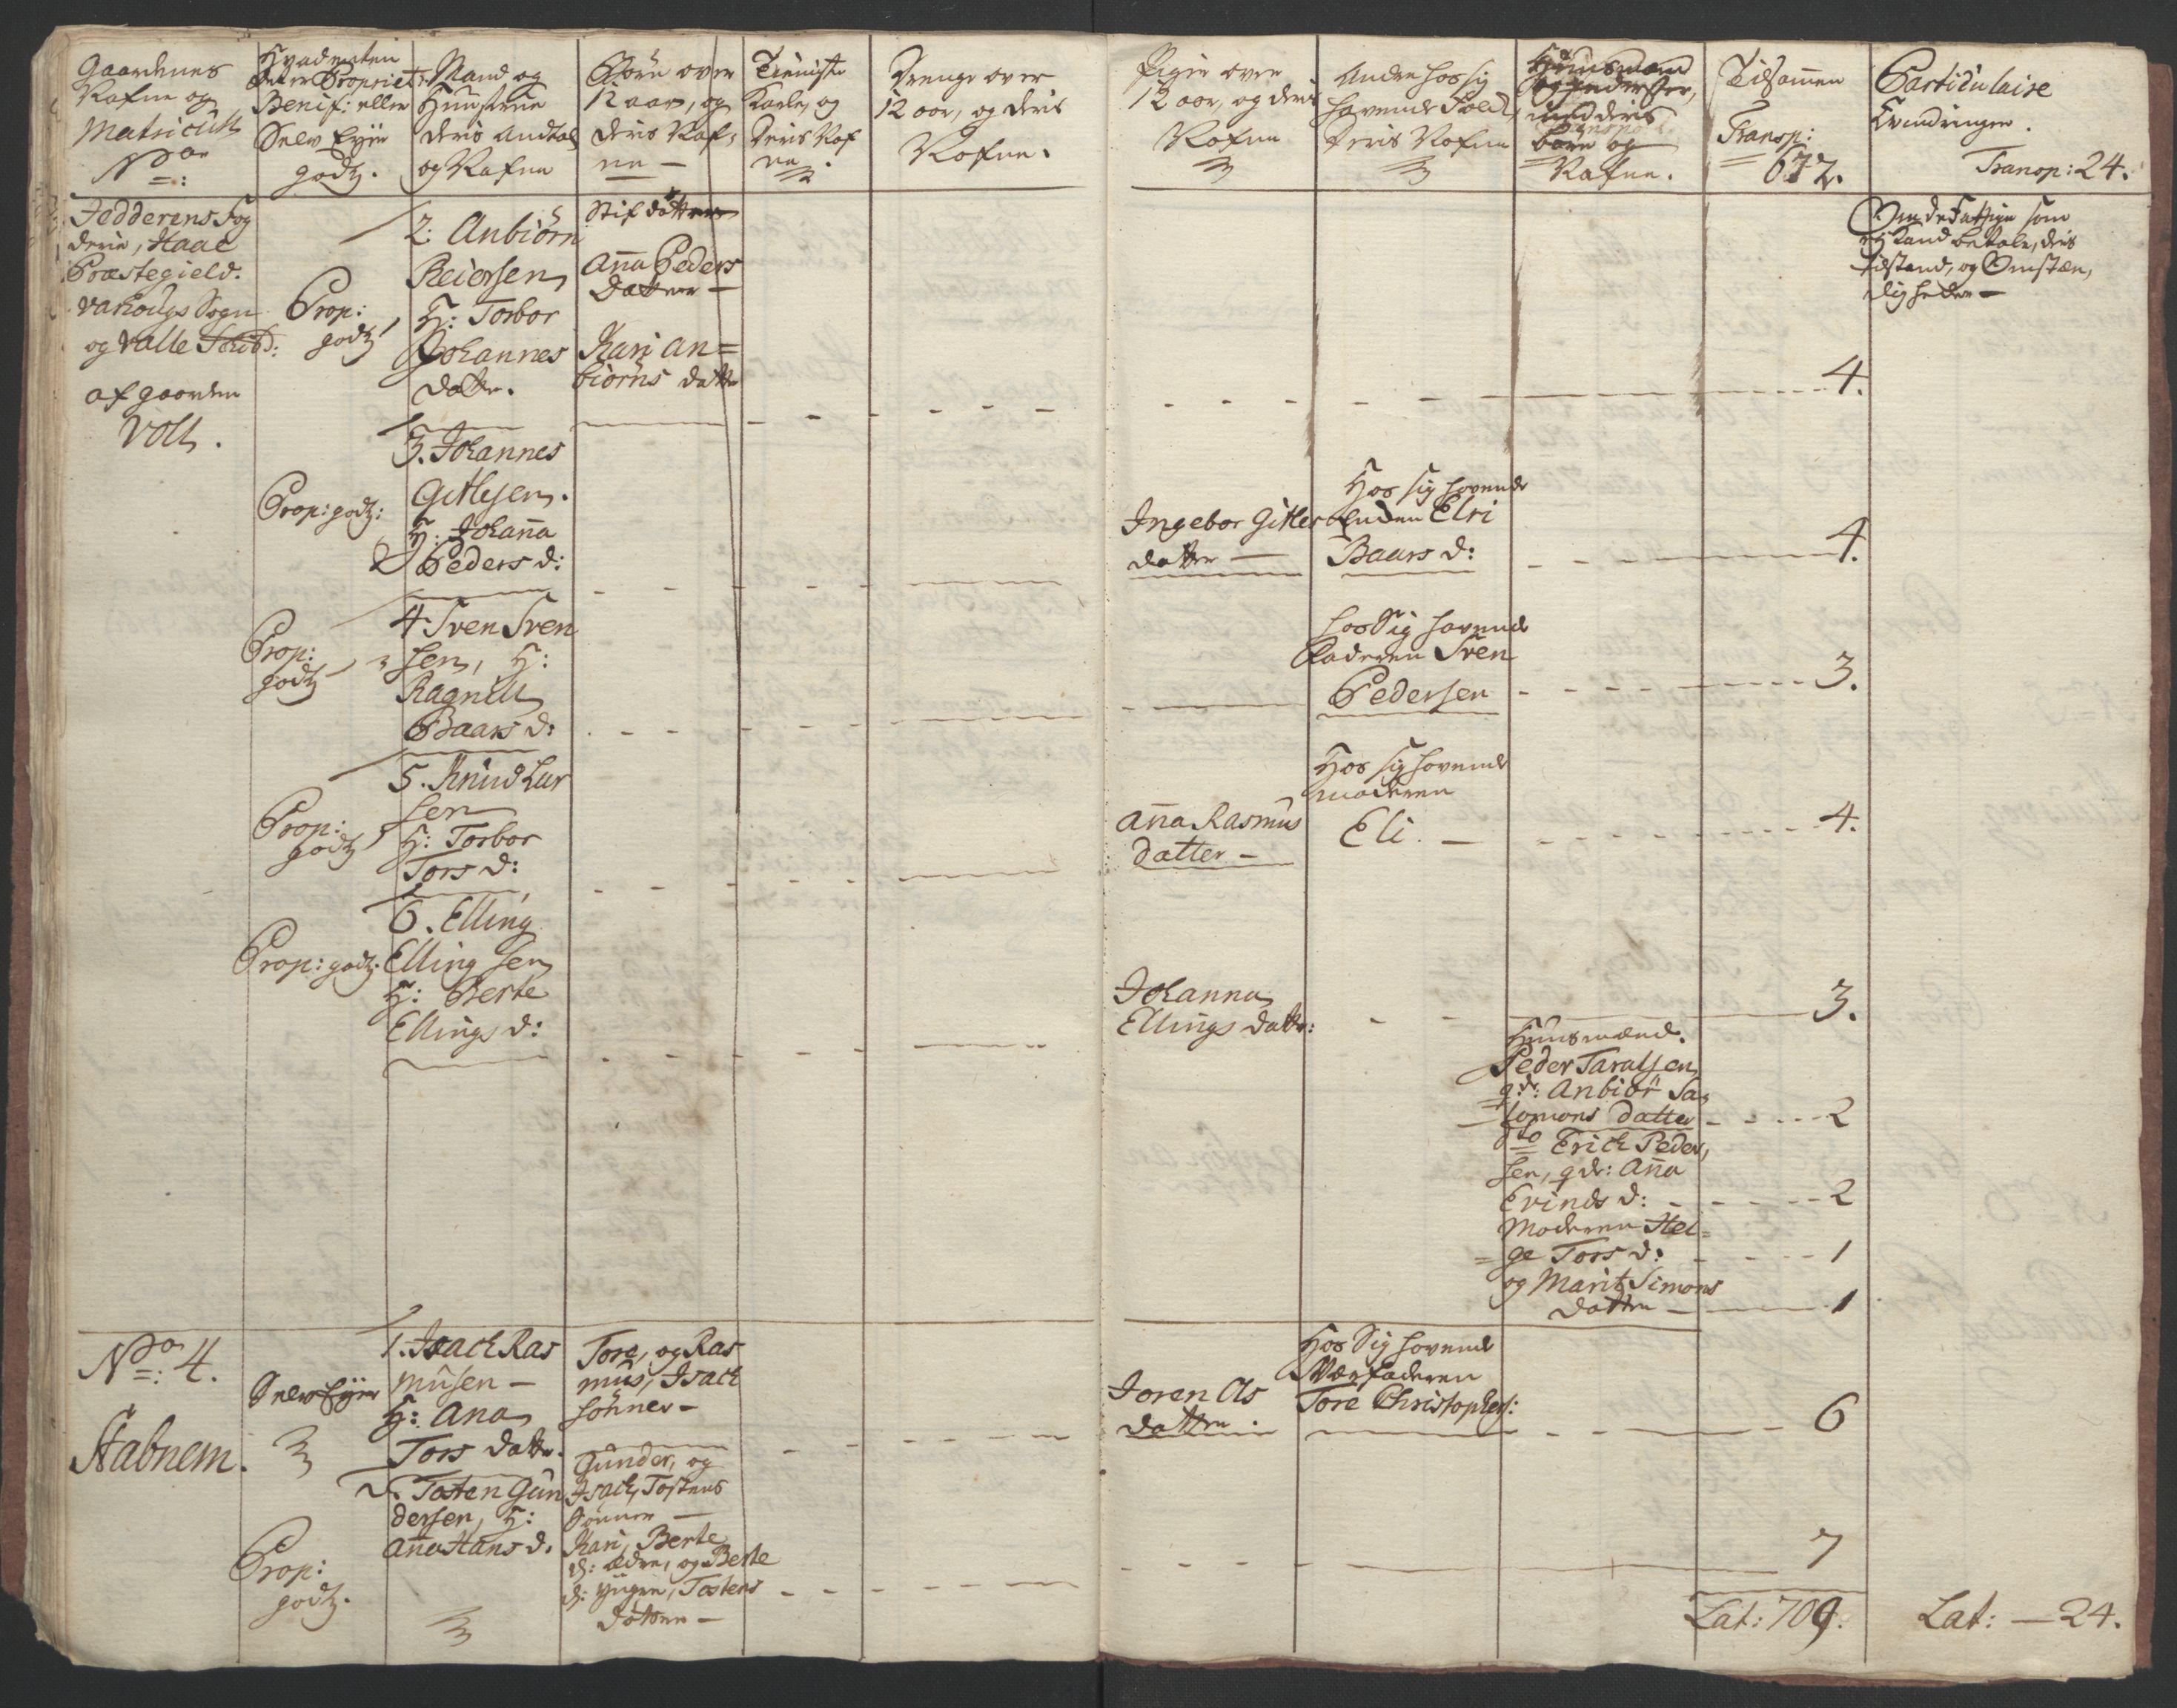 Gaardenes
Nafne og
Matricul
No
Hvad enten
det er Propriet:
Benif: eller
Selv Eyer
godtz.
Mand og
Hustrue
deris Andtal
og Nafne
Börn over
12 aar, og
deris Naf-
ne —
Tieniste
Karle, og
deris Naf
ne.
Drenge over
12 aar, og deris
Nafne.
Piger over
12 aar, og deris
Nafne
Andre hos sig
havende Folk,
deris Nafne
Huusmænd
og Inderster,
med deris
börn og
Nafne.
Tilsammen
Transp:
672.
Particulaire
Erindringer.
Transp: 24.
Jedderens Fog
derie, Haae
Præstegield.
Varhougs Sogn
og Valle Schibbd:
af gaarden
Voll.
Prop:
godtz
2. Anbiörn
Reiersen
H: Torbor
Johannes
datter.
Stif döttre
Anna Peders
Datter —
Kari An=
biörns datter
4.
Om de Fattige som
ey kand betale, deris
tilstand, og Omstæn,
digheder —
Prop: godtz:
3. Johannes
Gitlesen.
H: Johanna
Peders d:
Ingebor Gitles
datter —
Hos sig havende
Enken Elri
Baars d:
4.
Prop:
godtz
4 Sven Sven
sen, H:
Ragnill
Baars d:
hos Sig havende
Faderen Sven
Pedersen
3.
Prop:
godtz
5. Knud Lar
sen
H: Torbor
Tors d:
Anna Rasmus
datter —
Hos sig havende
moderen
Eli. —
4.
Prop: godtz.
6. Elling
Elling sen
H: Berte
Ellings d:
Johanna
Ellings datter:
3.
Huusmænd.
Peder Taralsen
qv: Anbiör Sa-
lomons datter
2
dto Erich Peder,
sen, qv: Anna
Evinds d:
2
Moderen Hel=
ge Tors d:
1
og Marit Simons
datter —
1
No: 4.
Stabnem.
Selv Eyer
1. Isach Ras
musen —
H: Ana
Tors datter.
Tore, og Ras
mus, Isach
söhner —
Joren Ols
datter.
Hos Sig havende
Værfaderen
Tore Christophers:
6
Prop:
godtz.
2. Tosten Gun
dersen, H:
Anna Hans d.
Gunder, og
Isach, Tostens
Sönner —
Kari, Berte
d: ædre, og Berte
d: yngre, Tostens
döttre —
7
Lat: 709.
Lat: — 24.